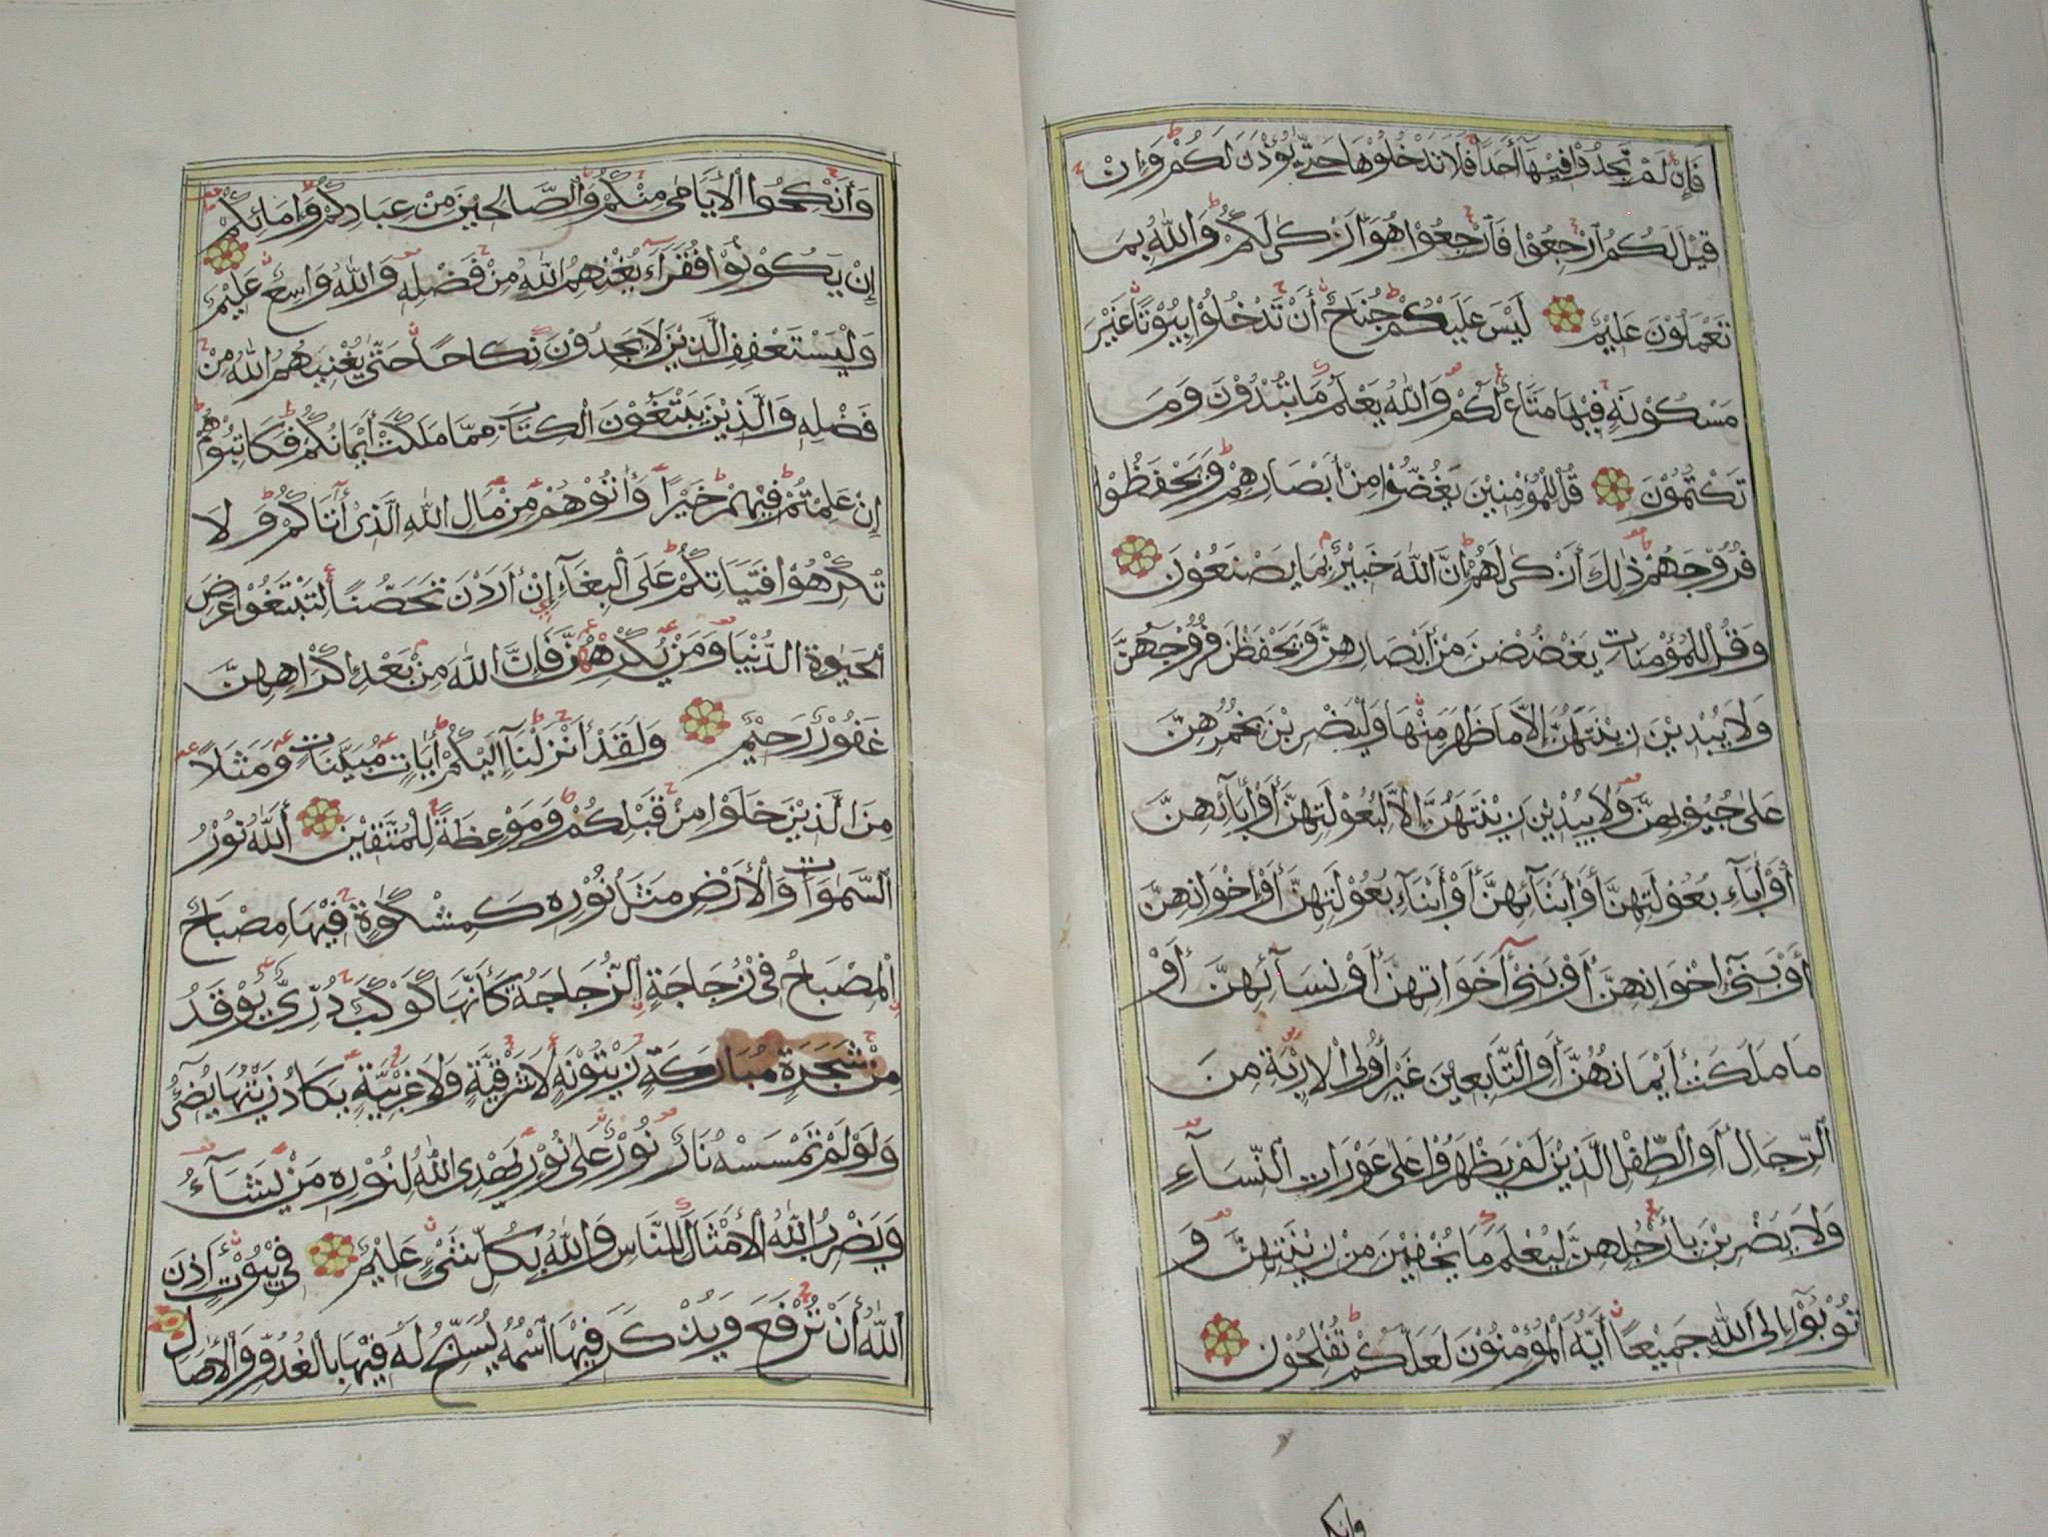 فَإِنْ لَمْ تَجِدُوْا فِيْهَآ أَحَدًا فَلَا تَدْخُلُوْهَا حَتّٰى يُؤْذَنَ لَكُمْ وَإِنْ
قِيْلَ لَكُمُ ٱرْجِعُوْا فَٱرْجِعُوْا هُوَ أَزْكٰى لَكُمْ وَاللّٰهُ بِمَا
تَعْمَلُوْنَ عَلِيْمٌ لَيْسَ عَلَيْكُمْ جُنَاحٌ أَنْ تَدْخُلُوْا بُيُوْتًا غَيْرَ
مَسْكُوْنَةٍ فِيْهَا مَتَاعٌ لَكُمْ وَاللّٰهُ يَعْلَمُ مَا تُبْدُوْنَ وَمَا
تَكْتُمُوْنَ قُلْ لِلْمُؤْمِنِيْنَ يَغُضُّوْا مِنْ أَبْصَارِهِمْ وَيَحْفَظُوْا
فُرُوْجَهُمْ ذٰلِكَ أَزْكٰى لَهُمْ إِنَّ اللّٰهَ خَبِيْرٌ بِمَا يَصْنَعُوْنَ
وَقُلْ لِلْمُؤْمِنَاتِ يَغْضُضْنَ مِنْ أَبْصَارِهِنَّ وَيَحْفَظْنَ فُرُوْجَهُنَّ
وَلَا يُبْدِيْنَ زِيْنَتَهُنَّ إِلَّا مَا ظَهَرَ مِنْهَا وَلْيَضْرِبْنَ بِخُمُرِهِنَّ
عَلٰى جُيُوْبِهِنَّ وَلَا يُبْدِيْنَ زِيْنَتَهُنَّ إِلَّا لِبُعُوْلَتِهِنَّ أَوْ أٰبَآئِهِنَّ
أَوْ أٰبَآءِ بُعُوْلَتِهِنَّ أَوْ أَبْنَآئِهِنَّ أَوْ أَبْنَآءِ بُعُوْلَتِهِنَّ أَوْ إِخْوَانِهِنَّ
أَوْ بَنِيْٓ إِخْوَانِهِنَّ أَوْ بَنِيْٓ أَخَوَاتِهِنَّ أَوْ نِسَآئِهِنَّ أَوْ
مَا مَلَكَتْ أَيْمَانُهُنَّ أَوِ ٱلتَّابِعِيْنَ غَيْرِ أُولِى ٱلْإِرْبَةِ مِنَ
ٱلرِّجَالِ أَوِ ٱلطِّفْلِ الَّذِيْنَ لَمْ يَظْهَرُوْا عَلٰى عَوْرَاتِ ٱلنِّسَآءِ
وَلَا يَضْرِبْنَ بِأَرْجُلِهِنَّ لِيُعْلَمَ مَا يُخْفِيْنَ مِنْ زِيْنَتِهِنَّ وَ
تُوْبُوْٓا إِلَى اللّٰهِ جَمِيْعًا أَيُّهَ ٱلْمُؤْمِنُوْنَ لَعَلَّكُمْ تُفْلِحُوْنَ
وانكحوا
وَأَنْكِحُوا ٱلْأَيَامٰى مِنْكُمْ وَٱلصَّالِحِيْنَ مِنْ عِبَادِكُمْ وَإِمَائِكُمْ
إِنْ يَكُوْنُوْا فُقَرَآءَ يُغْنِهِمُ اللّٰهُ مِنْ فَضْلِهِ وَاللّٰهُ وَاسِعٌ عَلِيْمٌ
وَلْيَسْتَعْفِفِ الَّذِيْنَ لَا يَجِدُوْنَ نِكَاحًا حَتّٰى يُغْنِيَهُمُ اللّٰهُ مِنْ
فَضْلِهِ وَالَّذِيْنَ يَبْتَغُوْنَ ٱلْكِتَابَ مِمَّا مَلَكَتْ أَيْمَانُكُمْ فَكَاتِبُوْهُمْ
إِنْ عَلِمْتُمْ فِيْهِمْ خَيْرًا وَأٰتُوْهُمْ مِنْ مَالِ اللّٰهِ الَّذِيْ أٰتَاكُمْ وَلَا
تُكْرِهُوْا فَتَيَاتِكُمْ عَلَى ٱلْبِغَآءِ إِنْ أَرَدْنَ تَحَصُّنًا لِتَبْتَغُوْا عَرَضَ
ٱلْحَيٰوةِ الدُّنْيَا وَمَنْ يُكْرِهْهُنَّ فَإِنَّ اللّٰهَ مِنْ بَعْدِ إِكْرَاهِهِنَّ
غَفُوْرٌ رَحِيْمٌ وَلَقَدْ أَنْزَلْنَآ إِلَيْكُمْ أٰيَاتٍ مُبَيِّنَاتٍ وَمَثَلًا
مِنَ الَّذِيْنَ خَلَوْا مِنْ قَبْلِكُمْ وَمَوْعِظَةً لِلْمُتَّقِيْنَ أَللّٰهُ نُوْرُ
ٱلسَّمٰوَاتِ وَٱلْأَرْضِ مَثَلُ نُوْرِهِ كَمِشْكٰوةٍ فِيْهَا مِصْبَاحٌ
ٱلْمِصْبَاحُ فِيْ زُجَاجَةٍ ٱلزُّجَاجَةُ كَأَنَّهَا كَوْكَبٌ دُرِّيٌّ يُوْقَدُ
مِنْ شَجَرَةٍ مُبَارَكَةٍ زَيْتُوْنَةٍ لَا شَرْقِيَّةٍ وَلَا غَرْبِيَّةٍ يَكَادُ زَيْتُهَا يُضِيْٓءُ
وَلَوْ لَمْ تَمْسَسْهُ نَارٌ نُوْرٌ عَلٰى نُوْرٍ يَهْدِى اللّٰهُ لِنُوْرِهِ مَنْ يَشَآءُ
وَيَضْرِبُ اللّٰهُ ٱلْأَمْثَالَ لِلنَّاسِ وَاللّٰهُ بِكُلِّ شَيْءٍ عَلِيْمٌ فِيْ بُيُوْتٍ أَذِنَ
اللّٰهُ أَنْ تُرْفَعَ وَيُذْكَرَ فِيْهَا ٱسْمُهُ يُسَبِّحُ لَهُ فِيْهَا بِٱلْغُدُوِّ وَٱلْأٰصَالِ